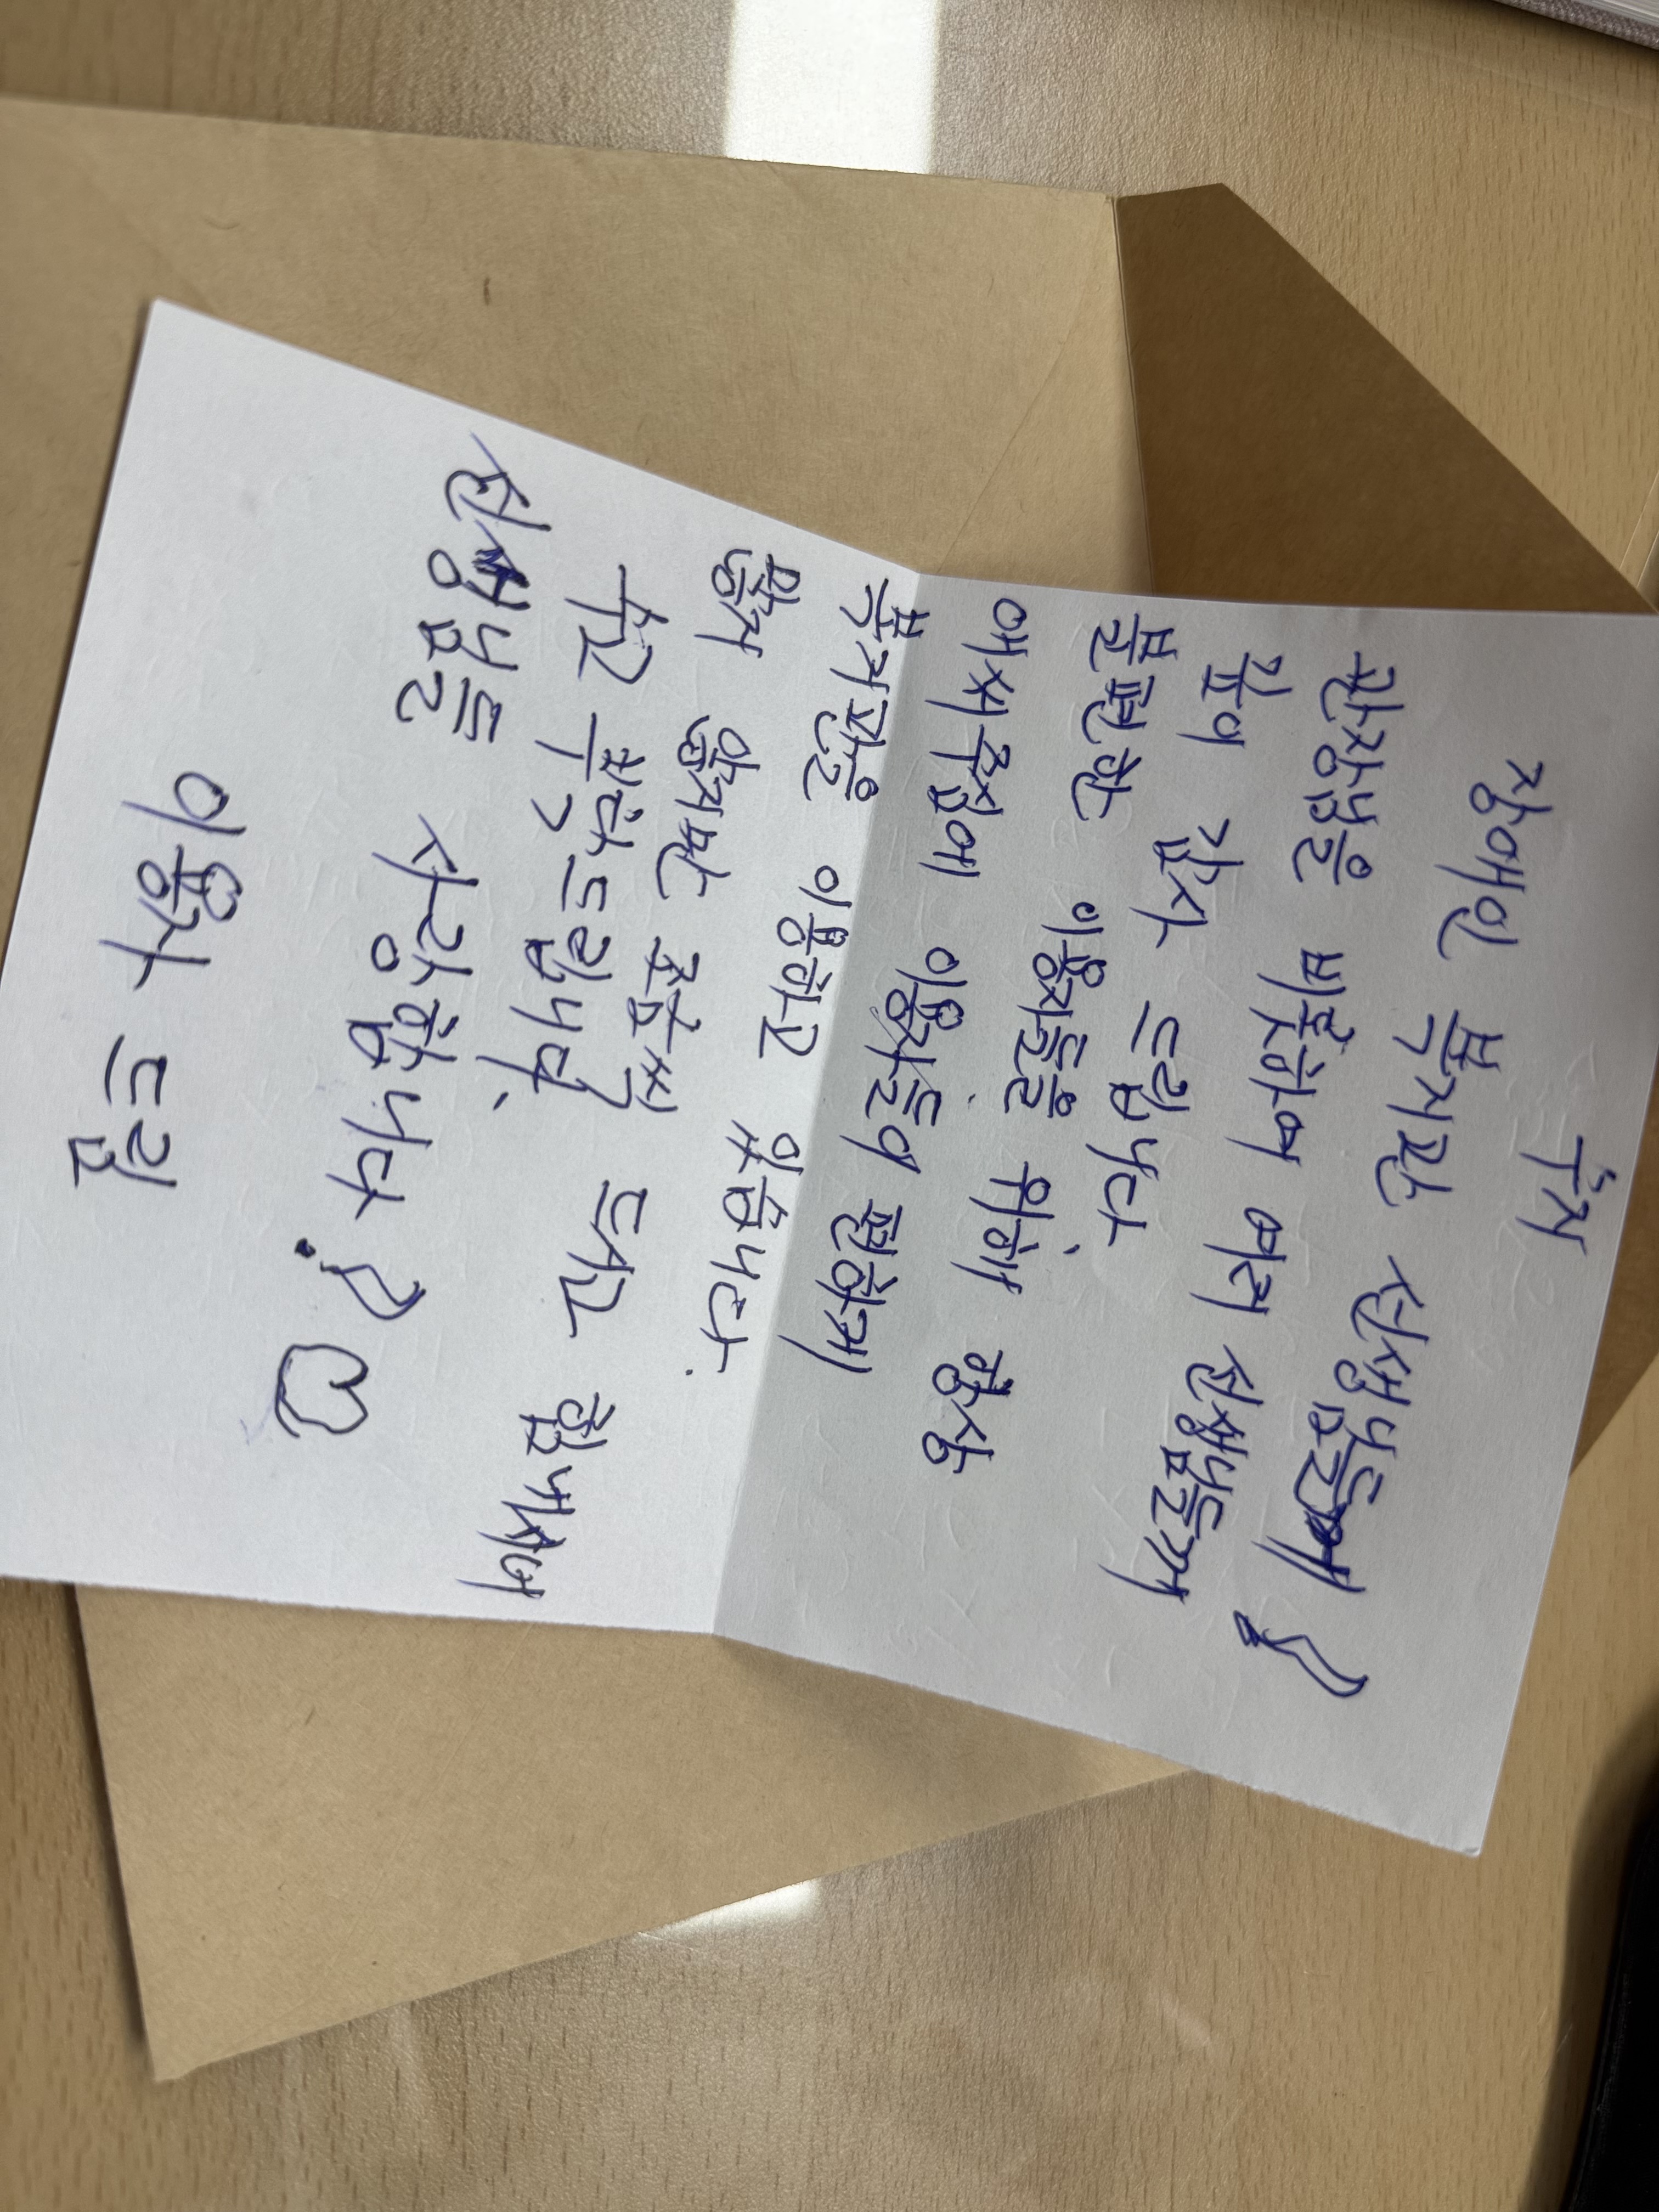 수신
장애인 복지관 선생님들께!
관장님을 비롯하여 여러 선생님들께
깊이 감사 드립니다
불편한 이용자들을 위해 항상
애써주심에 이용자들이 편하게
복지관을 이용하고 있습니다.
앞으로 조금씩 더 힘내시어
수고 부탁드립니다.
선생님들 사랑합니다!♡
이용자 드림